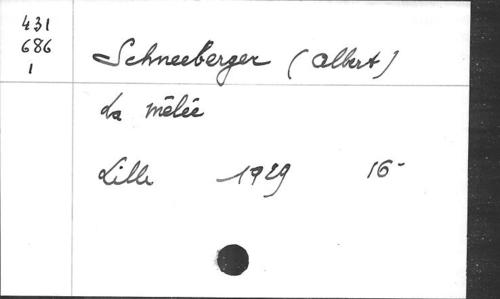 431
686
1
Schneeberger (Albert)
La mêlée
Lille 1929 16-